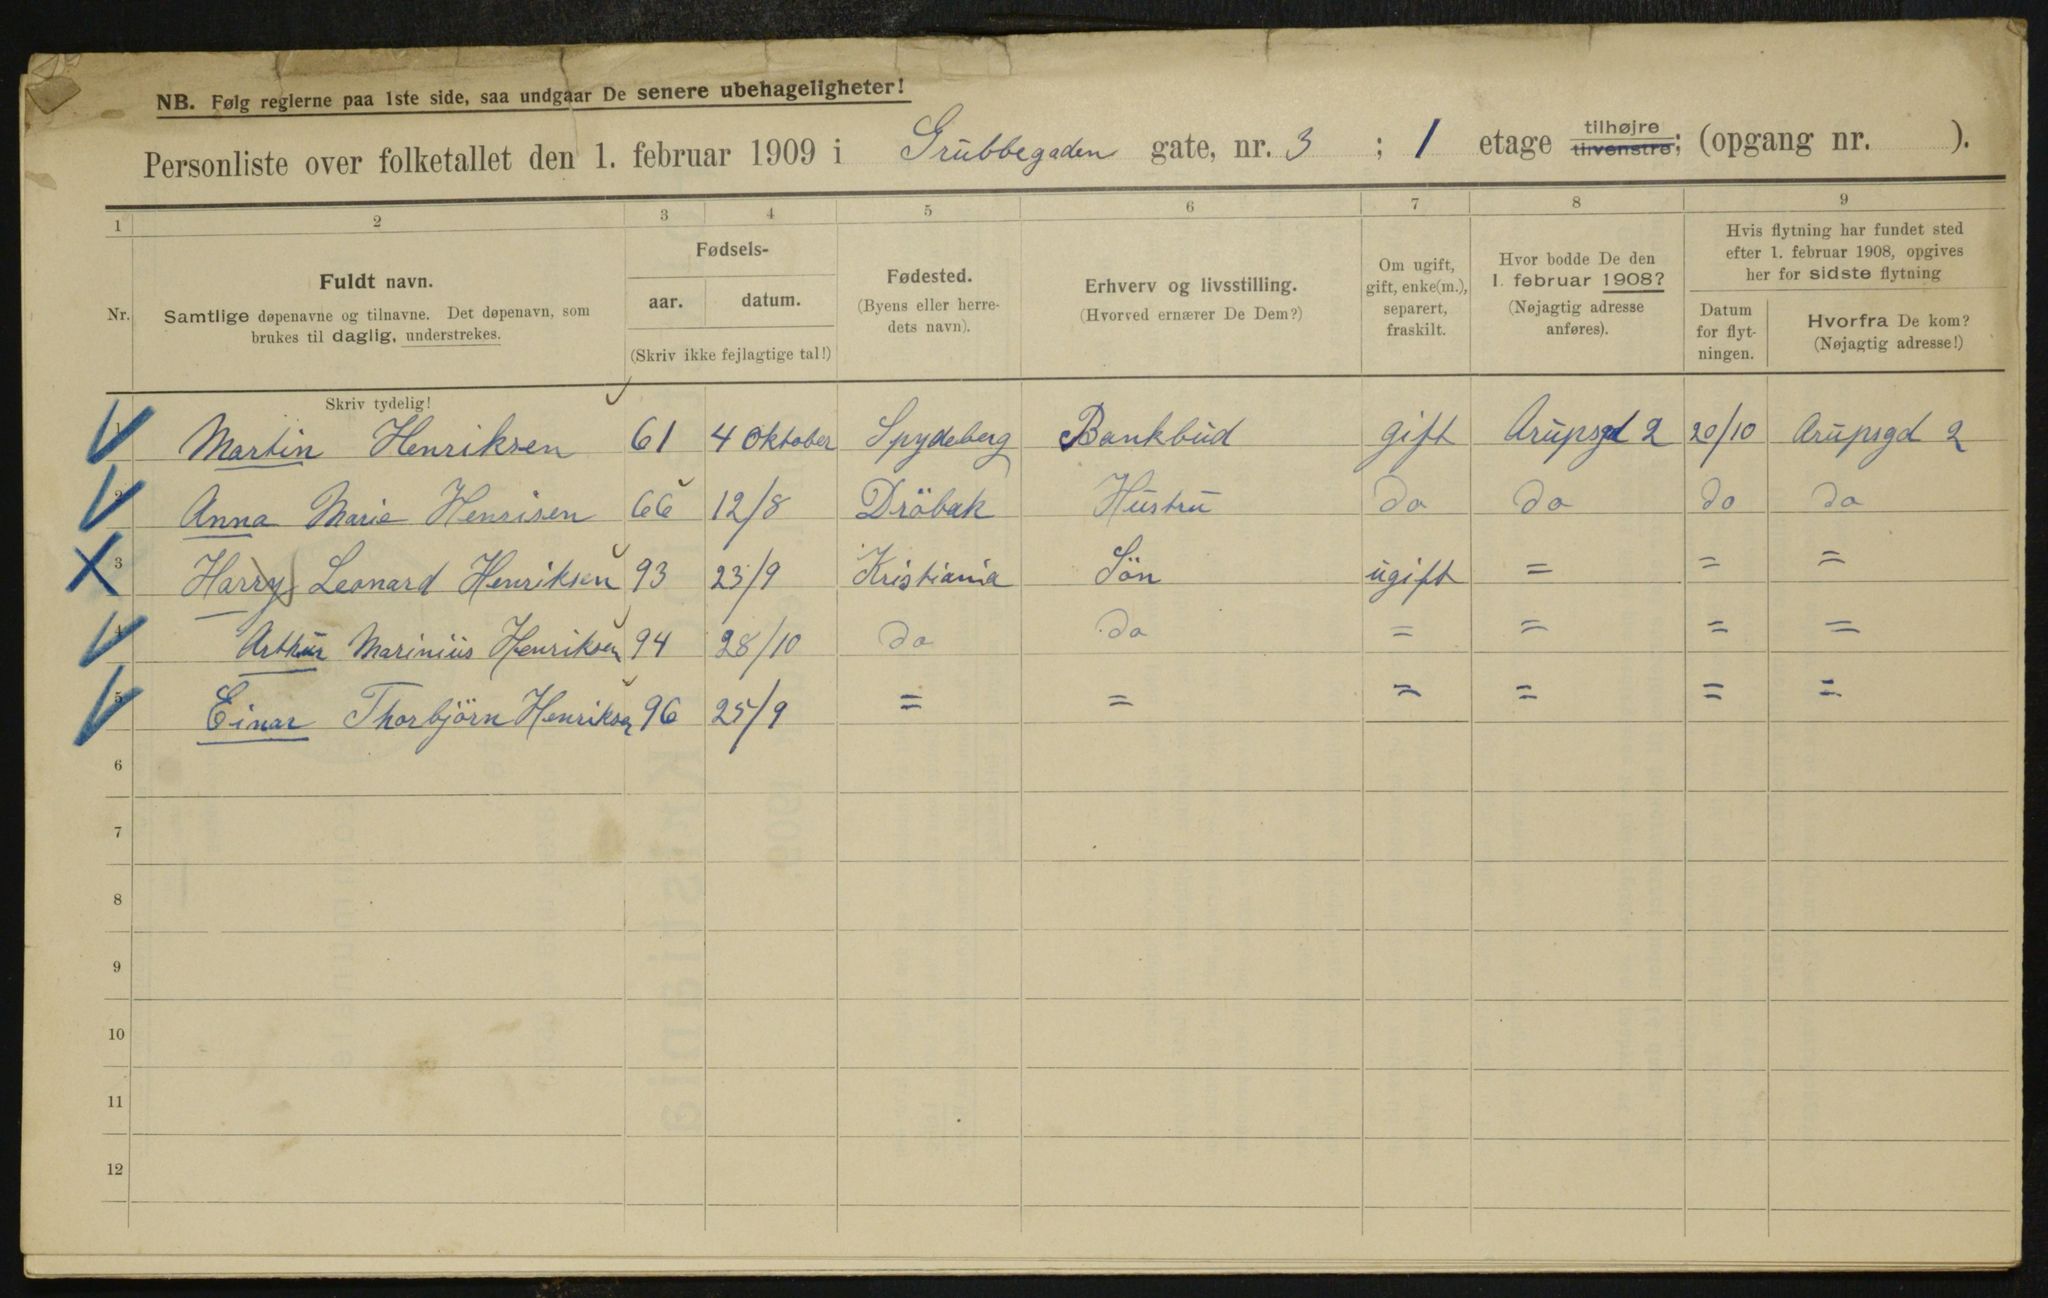 NB. Følg reglerne paa 1ste side, saa undgaar De senere ubehageligheter!
Personliste over folketallet den 1. februar 1909 i Grubbegaden gate, nr. 3 ; 1 etage tilhøjre tilvenstre; (opgang nr. ).
1 2 3 4 5 6 7 8 9
Nr.
Fuldt navn.
Samtlige døpenavne og tilnavne. Det døpenavn, som
brukes til daglig, understrekes.
Fødsels-
aar. datum.
(Skriv ikke fejlagtige tal!)
Fødested.
(Byens eller herre-
dets navn).
Erhverv og livsstilling.
(Hvorved ernærer De Dem?)
Om ugift,
gift, enke(m.),
separert,
fraskilt.
Hvor bodde De den
1. februar 1908?
(Nøjagtig adresse
anføres).
Hvis flytning har fundet sted
efter 1. februar 1908, opgives
her for sidste flytning
Datum
for flyt-
ningen.
Hvorfra De kom?
(Nøjagtig adresse!)
Skriv tydelig!
1 Martin Henriksen 61 4 Oktober Spydeberg Bankbud gift Arupsgd 2 20/10 Arupsgd 2
2 Anna Marie Henrisen 66 12/8 Dröbak Hustru do do do do
3 Harry Leonard Henriksen 93 23/9 Kristiania Sön ugift = = =
4 Arthur Marinius Henriksen 94 28/10 do do = = = =
5 Einar Thorbjörn Henriksen 96 25/9 = = = = = =
6
7
8
9
10
11
12